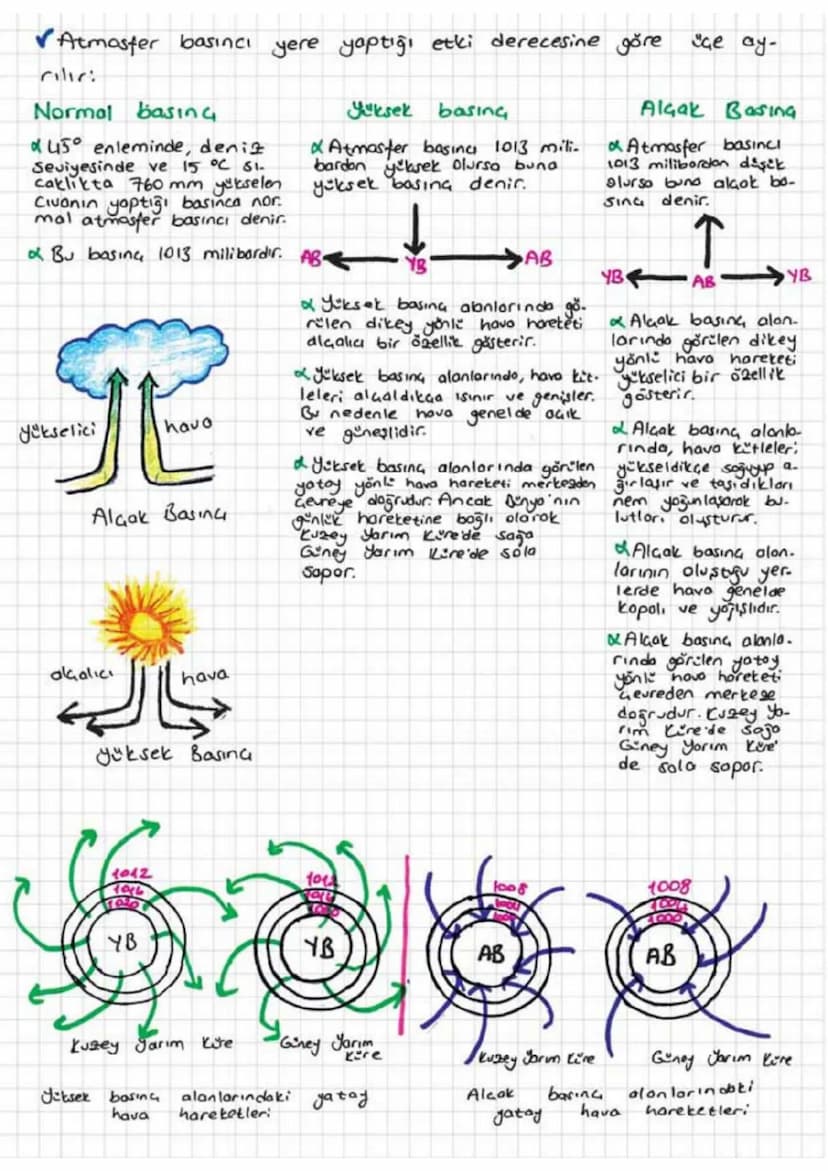 ✓ Atmosfer basıncı yere yaptığı etki derecesine göre üçe ay-
rılır:
Normal basınç
α 45° enleminde, deniz
seviyesinde ve 15 °C sı-
caklıkta 760 mm yükselen
civanın yaptığı basınca nor.
mal atmosfer basıncı denir.
α Bu basınç 1013 milibardır.
yükselici hava
Alçak Basınç
alçalıcı hava
yüksek Basınç
Yüksek basınç
α Atmosfer basıncı 1013 mili-
bardan yüksek olursa buna
yüksek basınç denir.
AB YB AB
α Yüksek basınç alanlarında gö-
rülen dikey yönlü hava hareketi
alçalıcı bir özellik gösterir.
α Yüksek basınç alanlarında, hava küt-
leleri alçaldıkça ısınır ve genişler.
Bu nedenle hava genelde açık
ve güneşlidir.
α Yüksek basınç alanlarında görülen
yatay yönlü hava hareketi merkezden
çevreye doğrudur. Ancak Dünya'nın
günlük hareketine bağlı olarak
Kuzey Yarım Küre'de sağa
Güney Yarım Küre'de sola
sapar.
Alçak Basınç
α Atmosfer basıncı
1013 milibardan düşük
olursa buna alçak ba-
sınç denir.
YB AB YB
α Alçak basınç alan-
larında görülen dikey
yönlü hava hareketi
yükselici bir özellik
gösterir.
α Alçak basınç alanla-
rında, hava kütleleri
yükseldikçe soğuyup a-
ğırlaşır ve taşıdıkları
nem yoğunlaşarak bu-
lutları oluşturur.
α Alçak basınç alan-
larının oluştuğu yer-
lerde hava genelde
kapalı ve yağışlıdır.
α Alçak basınç alanla-
rında görülen yatay
yönlü hava hareketi
çevreden merkeze
doğrudur. Kuzey Ya-
rım Küre'de sağa
Güney Yarım Küre'
de sola sapar.
1012
1016
1020
YB
Kuzey Yarım Küre
1012
1016
YB
Güney Yarım
Küre
1008
1004
AB
Kuzey Yarım Küre
1008
1004
1000
AB
Güney Yarım Küre
Yüksek basınç alanlarındaki yatay
hava hareketleri
Alçak basınç alanlarındaki
yatay hava hareketleri